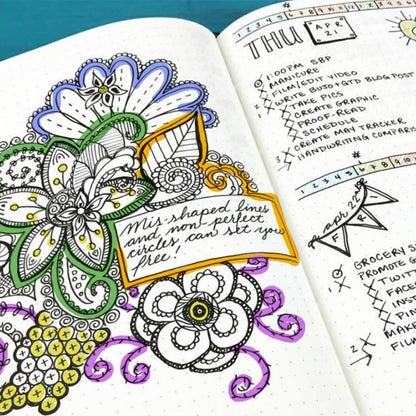 Mis-shaped lines
and non-perfect
circles can set you
free!
1 2 3 4 5 6 7 8 9
THU
APR
21
1:00PM SBP
MANICURE
FILM/EDIT VIDEO
WRITE BUJO+GTD BLOG POST
TAKE PICS
CREATE GRAPHIC
PROOF-READ
SCHEDULE
CREATE MAY TRACKER
HANDWRITING COMPAR
1 2 3 4 5 6 7 8 9 10
apr 22
F R
GROCERY S
PROMOTE G
TWIT
FACE
INS
PIN
MAN
FILM